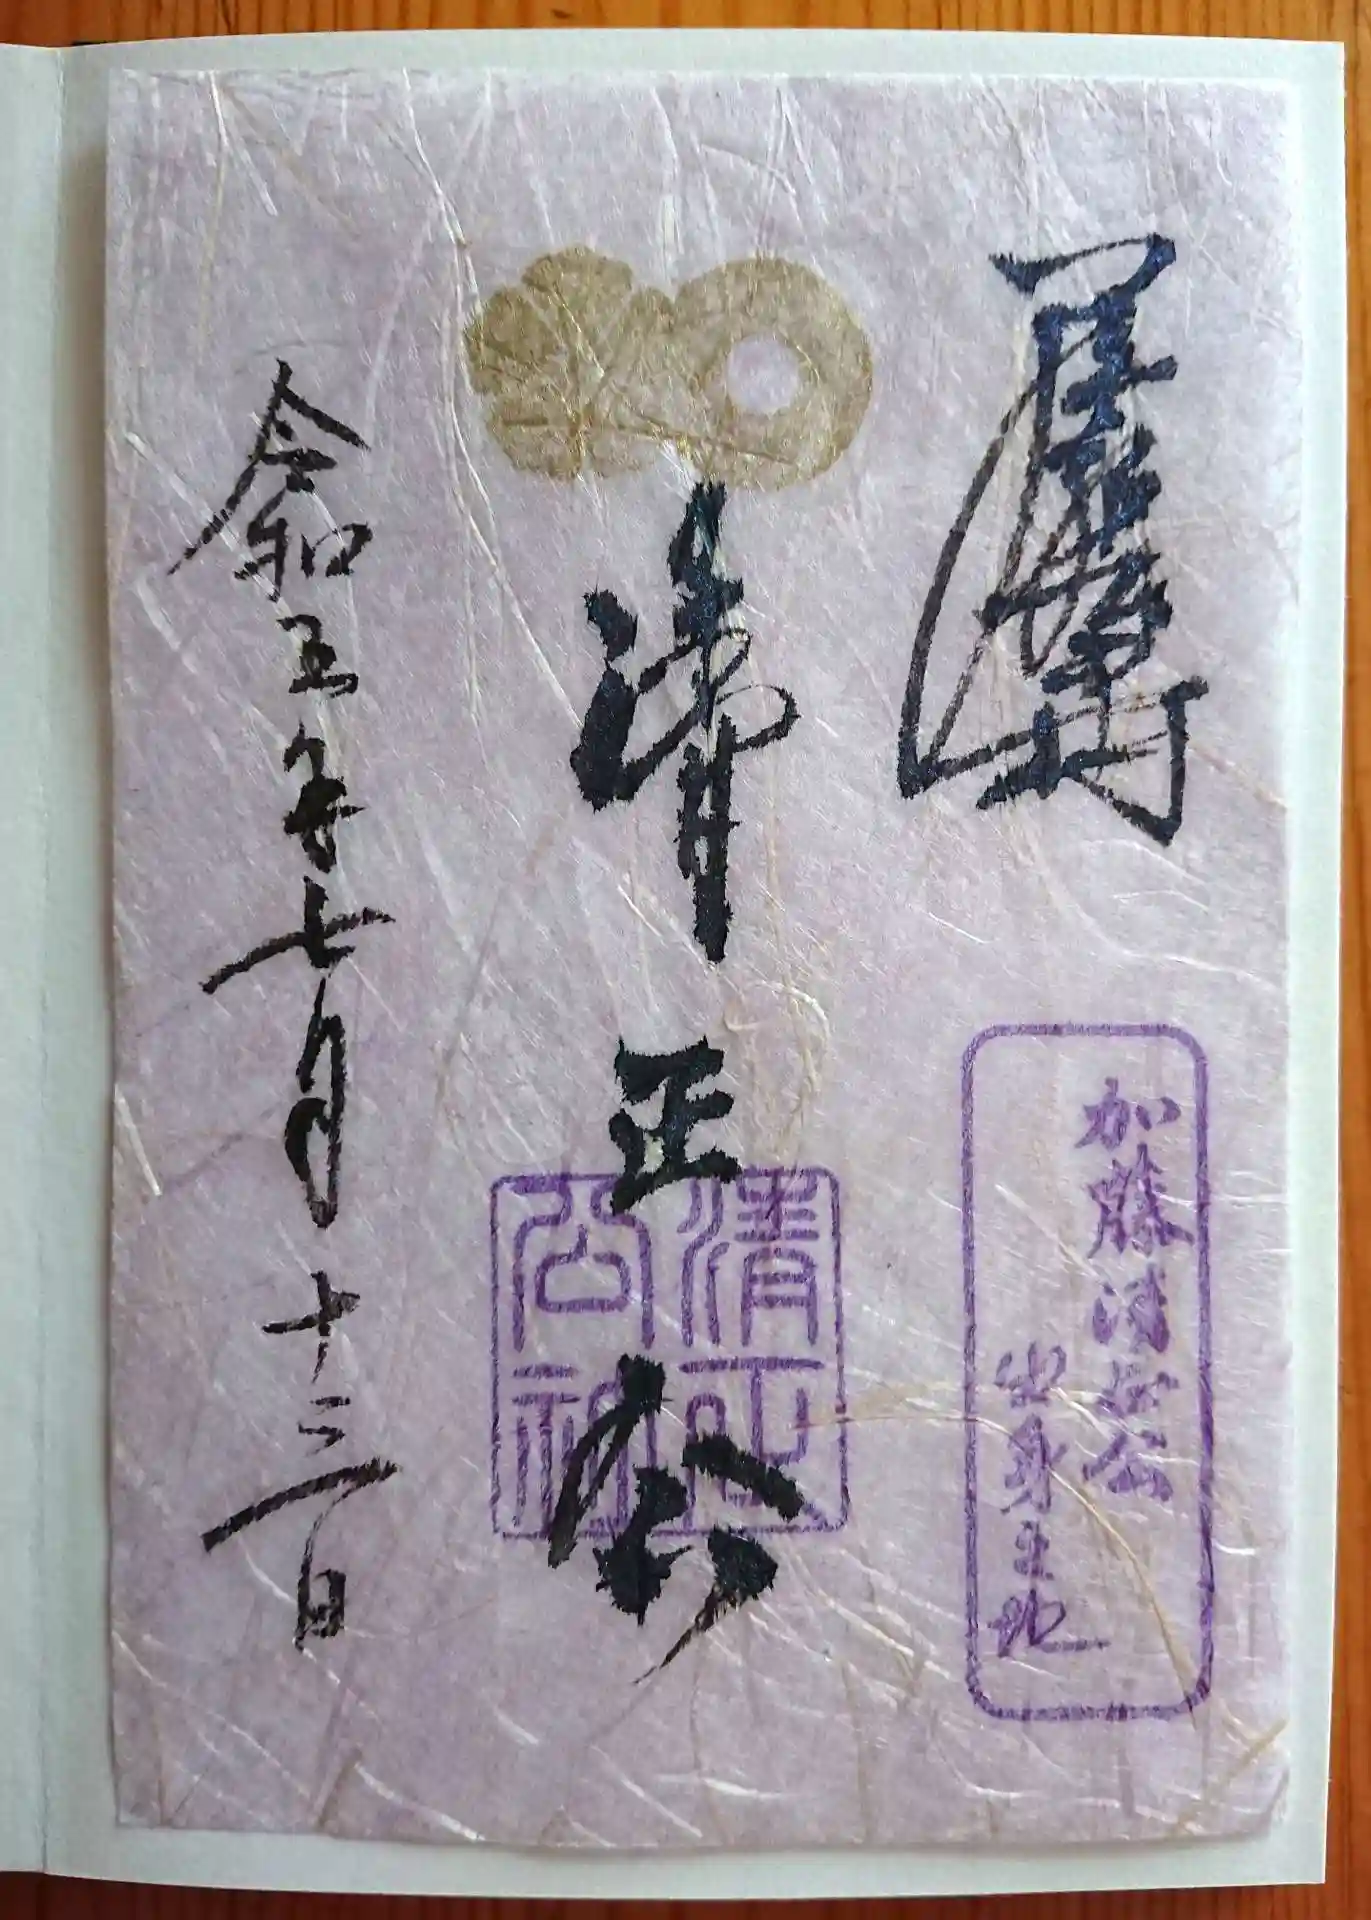 加藤清正公
出身
清正公
清正
公
令和五年七月十三日